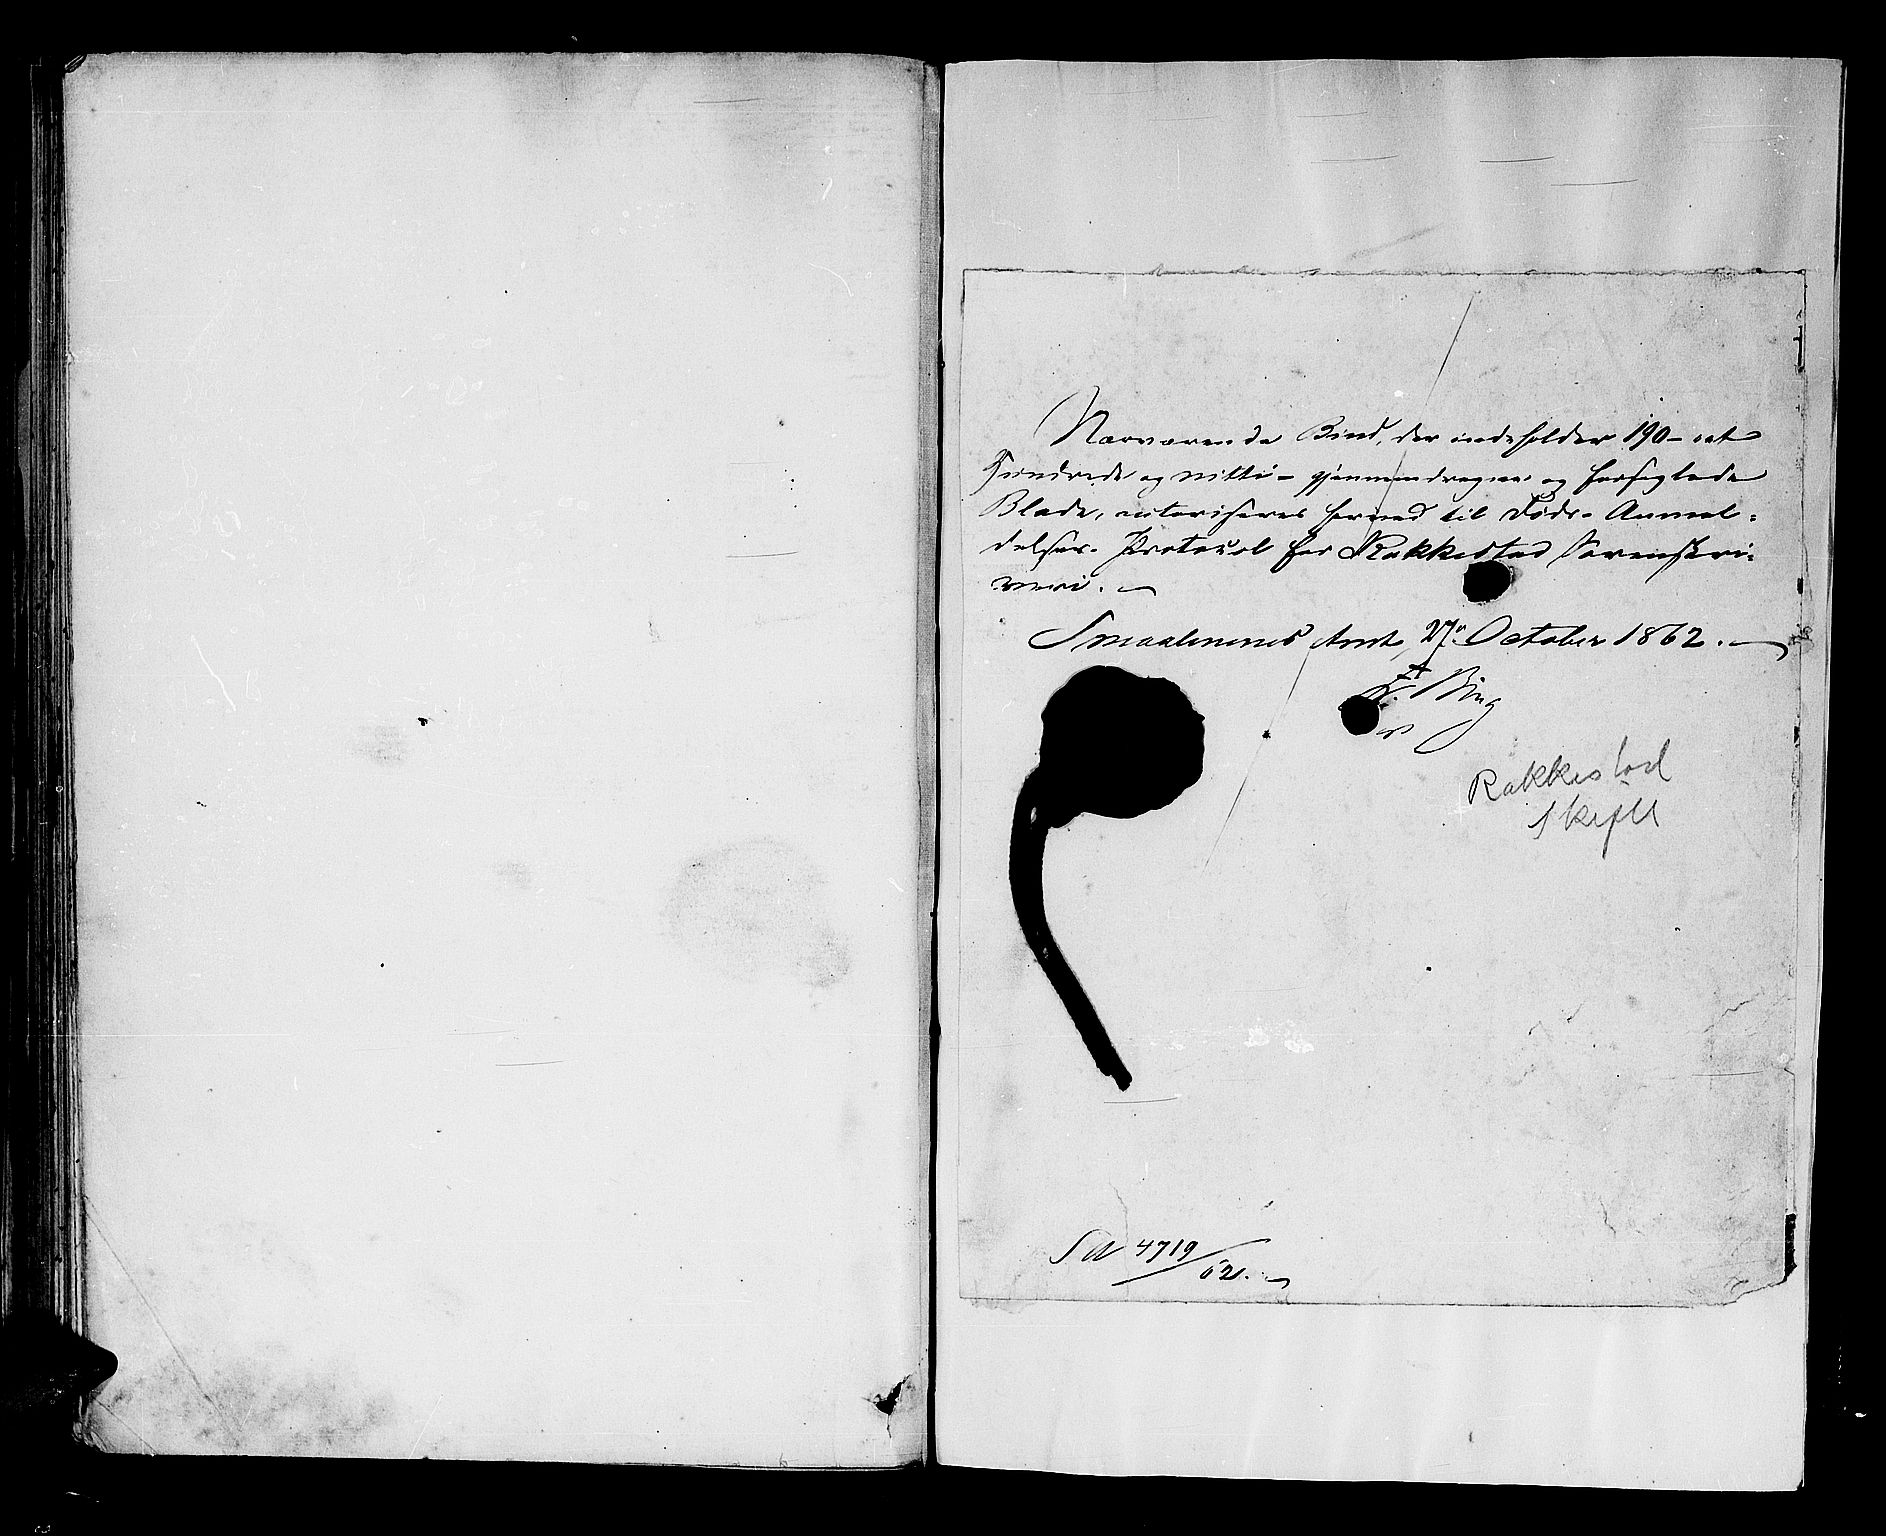 Nærværende Bind, der indeholder 190 - et
Hundrede og nitti - gjennemdragne og forseglede
Blade, autoriseres herved til Døds-Anmel-
delses-Protocol for Rakkestad Sorenskri-
veri.
Smaalenenes Amt, 27. October 1862.
Bing
Rakkestad
Skifte
4719/62.